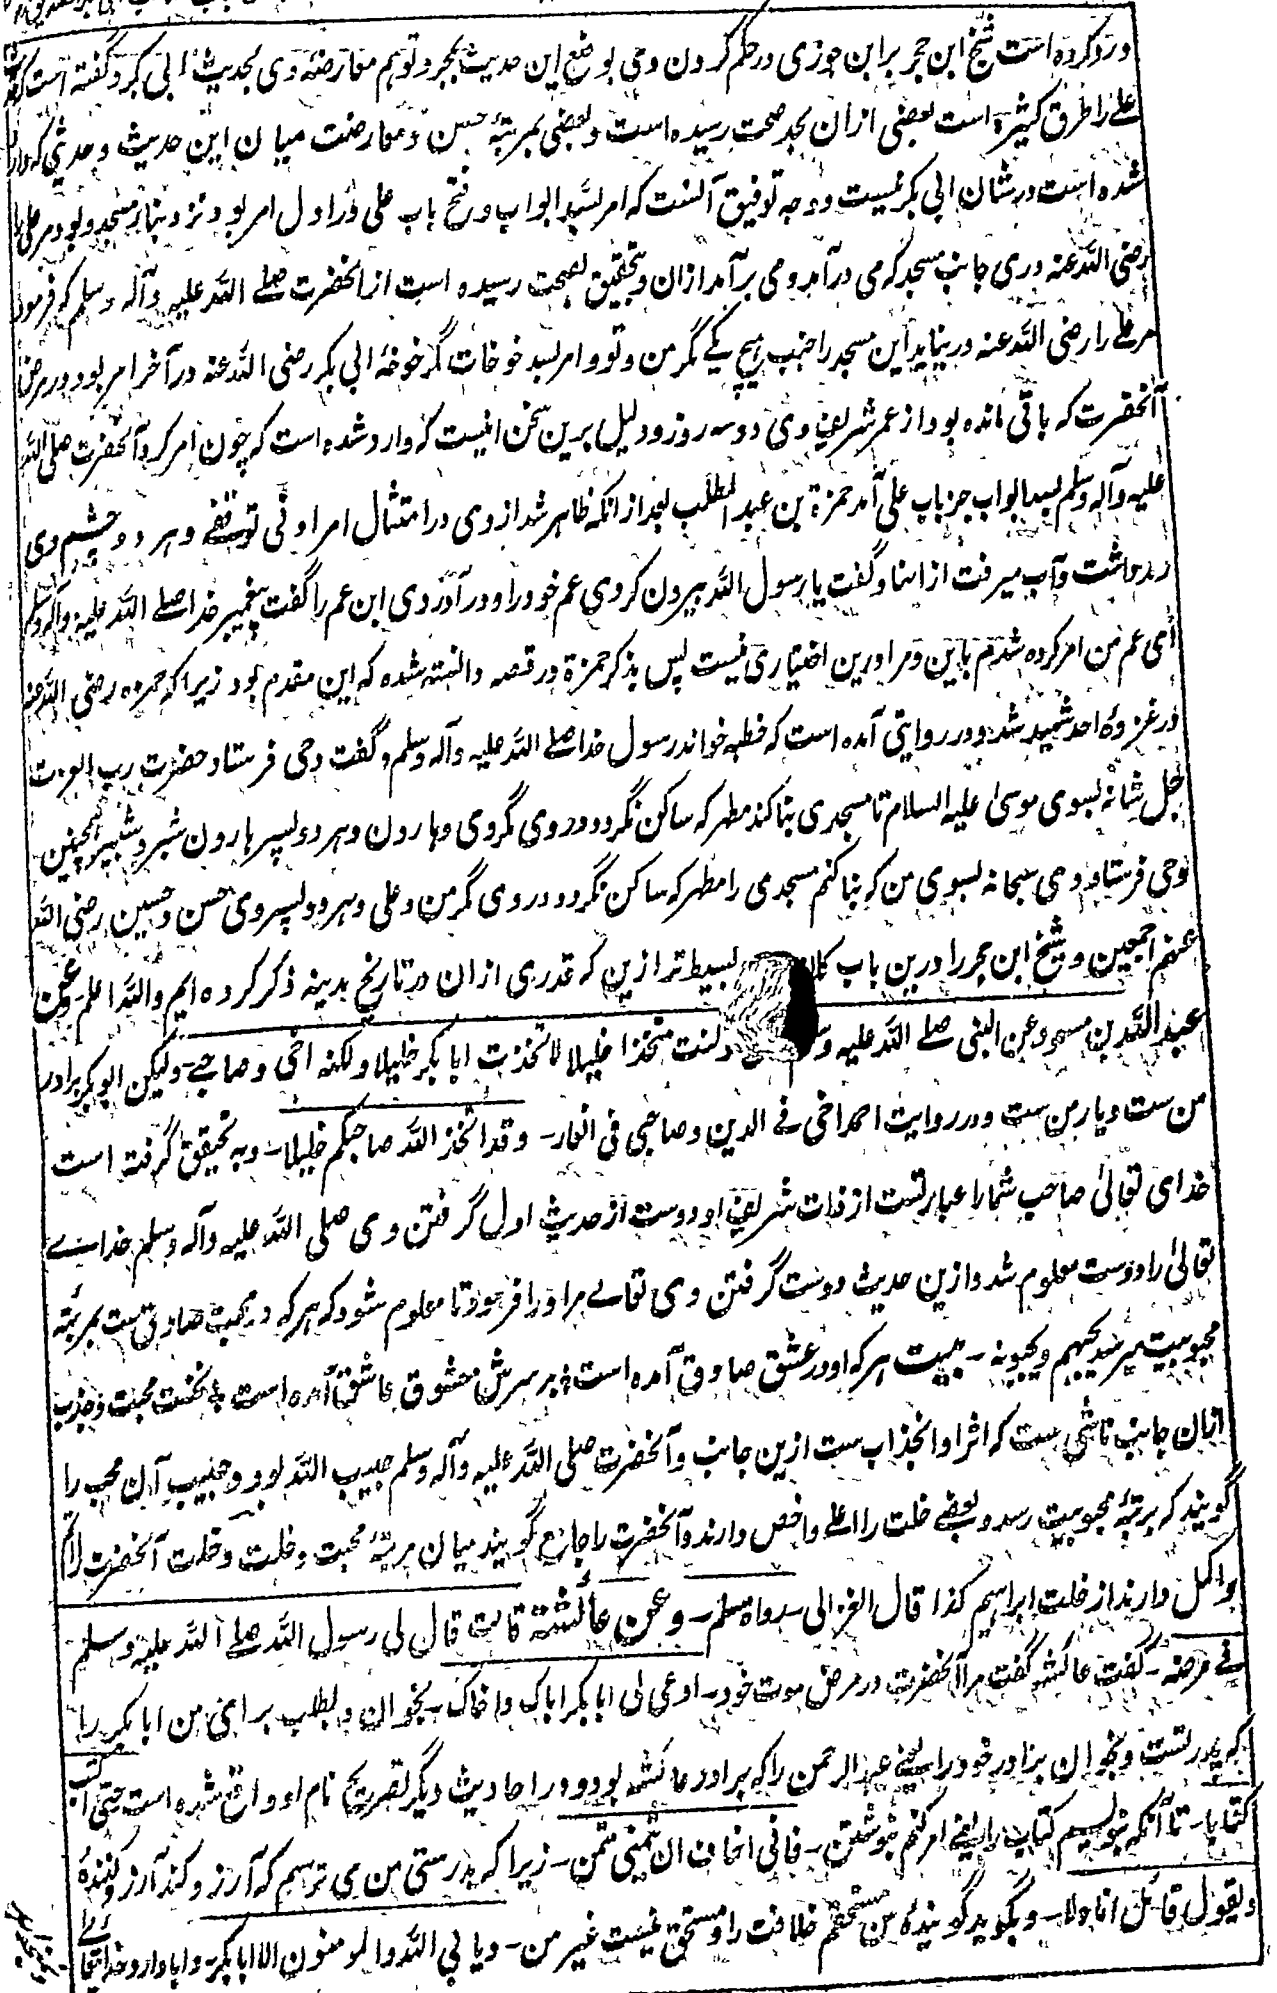 ورد کرده است شیخ ابن حجر بر ابن جوزی در حکم کردن وی بوضع این حدیث بمجرد توهم معارضهٔ وی بحدیث ابی بکر و گفته است که حدیث
علی را طرق کثیره است بعضی ازان بحد صحت رسیده است و بعضی بمرتبهٔ حسن و معارضت میان این حدیث و حدیثی که وارد
شده است در شان ابی بکر نیست و وجه توفیق آنست که امر بسد ابواب و فتح باب علی در اول امر بود نزد بنای مسجد و بود مر علی را
رضی الله عنه دری جانب مسجد که می درآمد و می برآمد ازان و بتحقیق بصحت رسیده است از آنحضرت صلے الله علیه وآله وسلم که فرمود
مر علے را رضی الله عنه در نیاید این مسجد را جنب هیچ یکے مگر من و تو و امر بسد خوخات مگر خوخهٔ ابی بکر رضی الله عنه در آخر امر بود در مرض
آنحضرت که باقی مانده بود از عمر شریف وی دو سه روز و دلیل برین سخن اینست که وارد شده است که چون امر کرد آنحضرت صلی الله
علیه وآله وسلم بسد ابواب جز باب علی آمد حمزة بن عبد المطلب بعد از انکه ظاهر شد از وی در امتثال امر او فی توقفے و هر دو چشم وی
رمد داشت و آب میرفت از انها و گفت یا رسول الله بیرون کردی عم خود را و درآوردی ابن عم را گفت پیغمبر خدا صلے الله علیه وآله وسلم
ای عم من امر کرده شدم باین و مرا درین اختیاری نیست پس بذکر حمزة در قصه دانسته شده که این مقدم بود زیرا که حمزه رضی الله عنه
در غزوهٔ احد شهید شد و در روایتی آمده است که خطبه خواند رسول خدا صلے الله علیه وآله وسلم و گفت وحی فرستاد حضرت رب العزت
جل شانه بسوی موسیٰ علیه السلام تا مسجدی بنا کند مطهر که ساکن نگردد در وی مگر وی و هارون و هر دو پسر هارون شبر و شبیر همچنین
وحی فرستاد وی سبحانه بسوی من که بنا کنم مسجدی را مطهر که ساکن نگردد در وی مگر من و علی و هر دو پسر وی حسن و حسین رضی الله
عنهم اجمعین و شیخ ابن حجر را درین باب بسیط تر ازین که قدری ازان در تاریخ مدینه ذکر کرده ایم والله اعلم - وعن
عبد الله بن مسعود عن النبی صلے الله علیه کنت متخذا خلیلا لاتخذت ابا بکر خلیلا ولکنه اخی و صاحبے - ولیکن ابو بکر برادر
من ست و یار من ست و در روایت احمد اخی فے الدین و صاحبی فی الغار - وقد اتخذ الله صاحبکم خلیلا - و به تحقیق گرفته است
خدای تعالیٰ صاحب شما را عبارتست از ذات شریف او دوست از حدیث اول گرفتن وی صلی الله علیه وآله وسلم خداے
تعالیٰ را دوست معلوم شد و ازین حدیث دوست گرفتن وی تعالے مر او را فرمود تا معلوم شود که هر که در محبت صادق ست بمرتبهٔ
محبوبیت میرسد یحبهم و یحبونه - بیت هر که او در عشق صادق آمده است ؛ بر سرش معشوق عاشق آمده است ؛ نخست محبت و جذب
ازان جانب ناشی ست که اثر او انجذاب ست ازین جانب و آنحضرت صلی الله علیه وآله وسلم حبیب الله بود و حبیب آن محب را
گویند که بمرتبهٔ محبوبیت رسد و بعضے خلت را اعلے و اخص دارند و آنحضرت را جامع گویند میان مرتبهٔ محبت و خلت و خلت آنحضرت را اتم
و اکمل دارند از خلت ابراهیم کذا قال الغزالی - رواه مسلم - وعن عائشة قالت قال لی رسول الله صلے الله علیه وسلم
فے مرضه - گفت عائشه گفت مرا آنحضرت در مرض موت خود - ادعی لی ابا بکر اباک و اخاک - بخوان و بطلب برای من ابا بکر را
که پدر تست و بخوان برادر خود را یعنے عبد الرحمن را که برادر عائشه بود و در احادیث دیگر تصریح نام او واقع شده است حتی اکتب
کتابا - تا آنکه بنویسم کتاب را یعنے امر کنم بنوشتن - فانی اخاف ان یتمنی متمن - زیرا که بدرستی من می ترسم که آرزو کند آرزو کنندهٔ
ویقول قائل انا ولا - و بگوید گویندهٔ من مستحقم خلافت را و مستحق نیست غیر من - ویابی الله والمومنون الا ابا بکر - و ابا دارد خدایتعالے